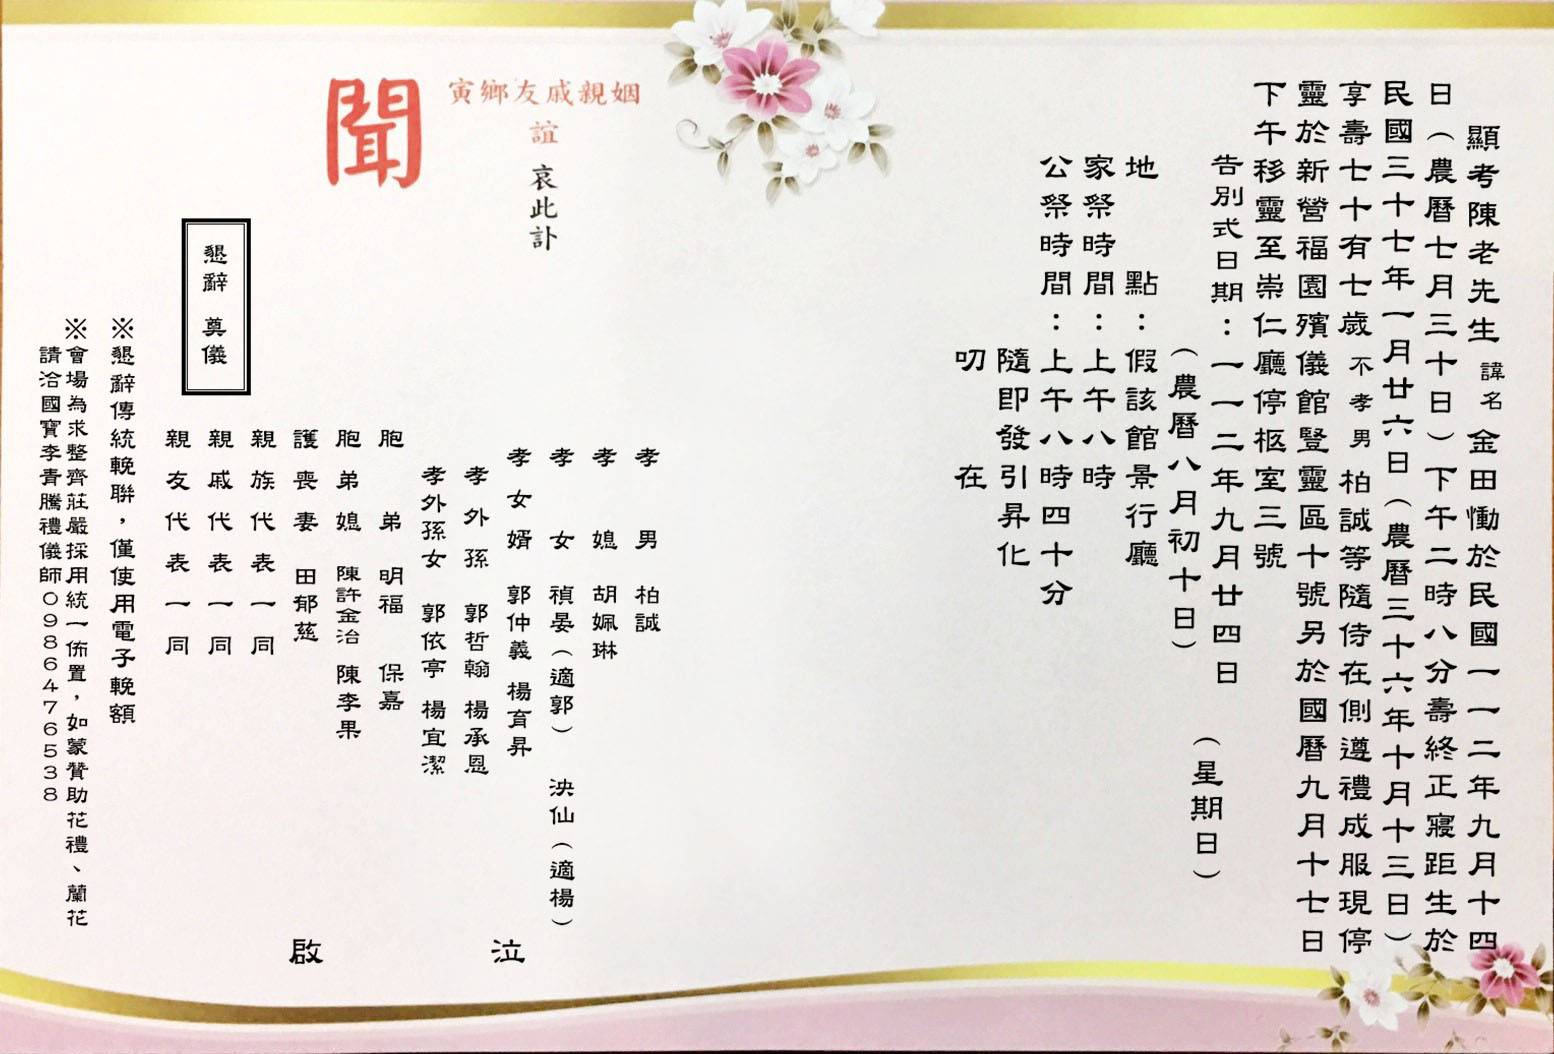 顯考陳老先生 諱名 金田慟於民國一一二年九月十四
日（農曆七月三十日）下午二時八分壽終正寢距生於
民國三十七年一月廿六日（農曆三十六年十月十三日）
享壽七十有七歲 不孝男 柏誠等隨侍在側遵禮成服現停
靈於新營福園殯儀館豎靈區十號另於國曆九月十七日
下午移靈至崇仁廳停柩室三號
告別式日期：一一二年九月廿四日（星期日）
（農曆八月初十日）
地點：假該館景行廳
家祭時間：上午八時
公祭時間：上午八時四十分
隨即發引昇化
叨在
姻親戚友鄉寅
誼 哀此訃
聞
孝男 柏誠
孝媳 胡姵琳
孝女 禎晏（適郭） 泱仙（適楊）
孝女婿 郭仲義 楊育昇
孝外孫 郭哲翰 楊承恩
孝外孫女 郭依亭 楊宜潔
胞弟 明福 保嘉
胞弟媳 陳許金治 陳李果
護喪妻 田郁慈
親族代表一同
親戚代表一同
親友代表一同
泣啟
懇辭 奠儀
※懇辭傳統輓聯，僅使用電子輓額
※會場為求整齊莊嚴採用統一佈置，如蒙贊助花禮、蘭花
請洽國寶李青騰禮儀師0986476538